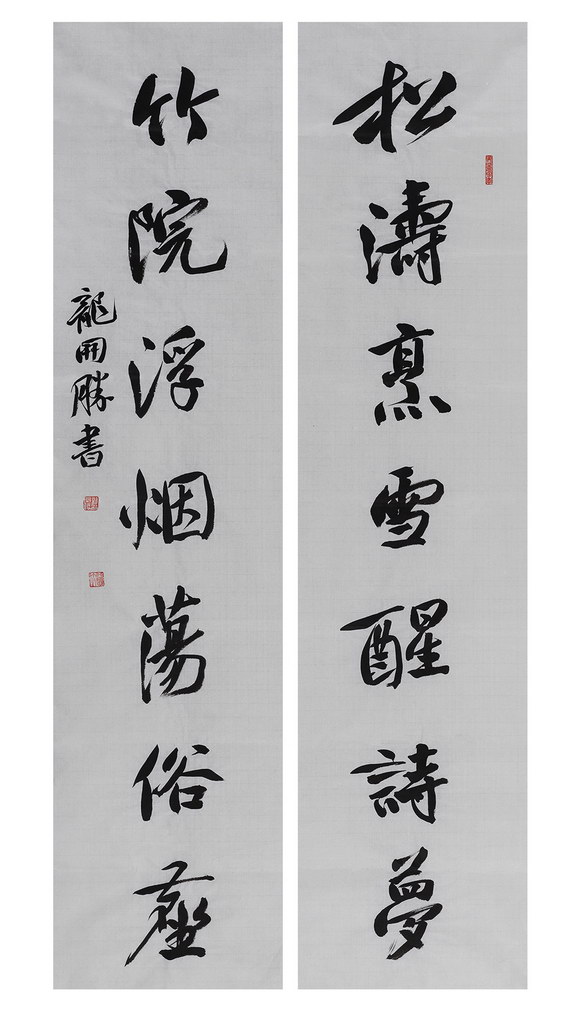 松濤烹雪醒詩夢
竹院浮烟蕩俗塵
龍開勝書